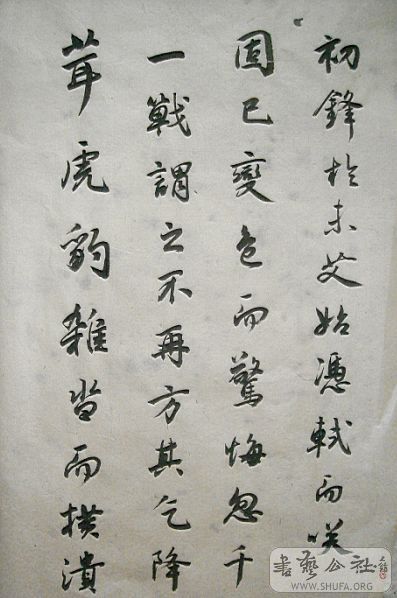 初鋒於未艾始憑軾而唉
固已變色而驚悔忽千
一戰謂之不再方其乞降
茸虎豹雜沓而橫潰
書藝公社
WWW.SHUFA.ORG